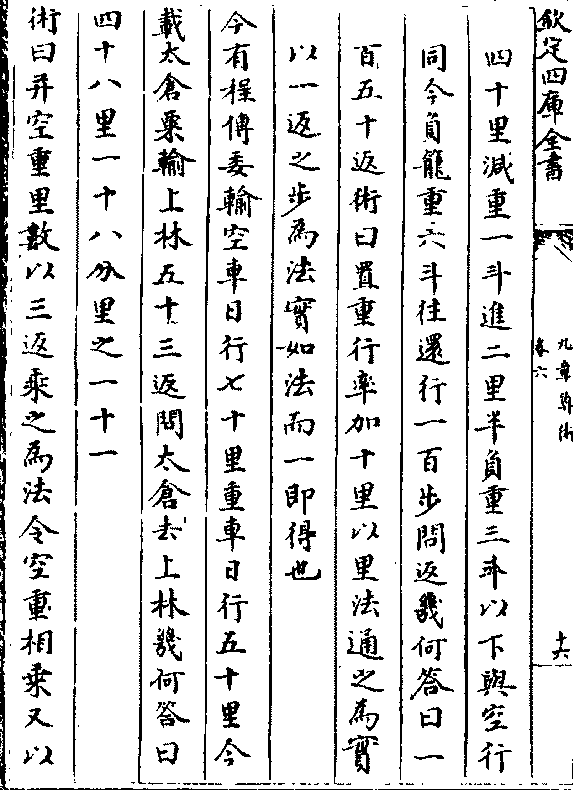 欽定四庫全書
九章算術
卷六
十六
四十里減重一斗進二里半負重三斗以下與空行
同今負籠重六斗往還行一百步問返幾何答曰一
百五十返術曰置重行率加十里以里法通之為實
以一返之步為法實如法而一即得也
今有程傳委輸空車日行七十里重車日行五十里今
載太倉粟輸上林五日三返問太倉去上林幾何答曰
四十八里一十八分里之一十一
術曰并空重里數以三返乘之為法令空重相乘又以